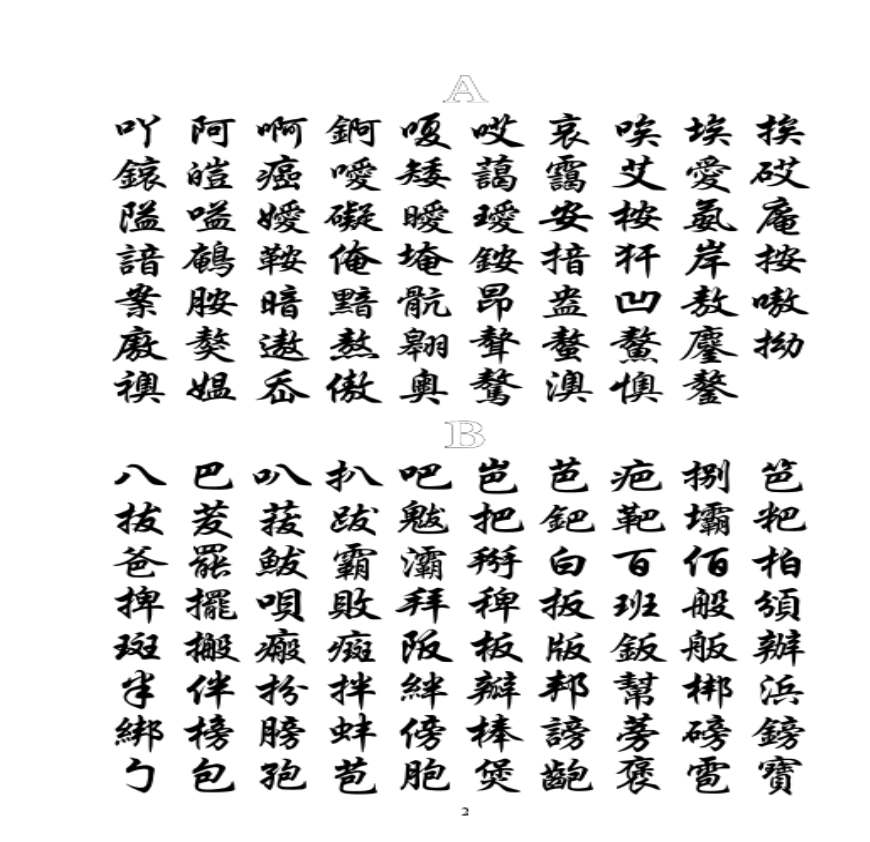 A
吖 阿 啊 錒 嗄 哎 哀 唉 埃 挨
鎄 皚 癌 噯 矮 藹 靄 艾 愛 砹
隘 嗌 嬡 礙 曖 璦 安 桉 氨 庵
諳 鵪 鞍 俺 埯 銨 揞 犴 岸 按
案 胺 暗 黯 骯 昂 盎 凹 敖 嗷
廒 獒 遨 熬 翱 聱 螯 鰲 鏖 拗
襖 媼 岙 傲 奧 驁 澳 懊 鏊
B
八 巴 叭 扒 吧 岜 芭 疤 捌 笆
拔 茇 菝 跋 魃 把 鈀 靶 壩 粑
爸 罷 鲅 霸 灞 掰 白 百 佰 柏
捭 擺 唄 敗 拜 稗 扳 班 般 頒
斑 搬 瘢 癍 阪 板 版 鈑 舨 辦
半 伴 扮 拌 絆 瓣 邦 幫 梆 浜
綁 榜 膀 蚌 傍 棒 謗 蒡 磅 鎊
勹 包 孢 苞 胞 煲 齙 褒 雹 寶
2